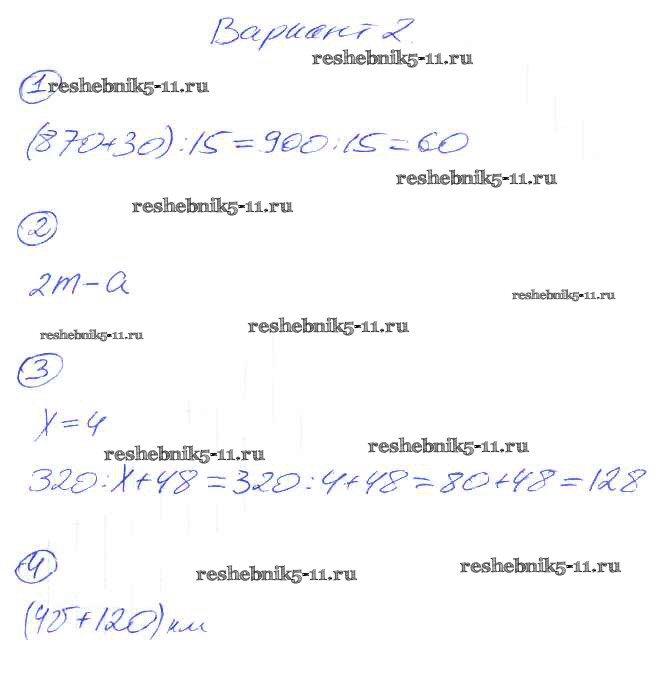 Вариант 2.
reshebnik5-11.ru
1 reshebnik5-11.ru
(870+30):15=900:15=60
reshebnik5-11.ru
reshebnik5-11.ru
2
2m-a
reshebnik5-11.ru
reshebnik5-11.ru
reshebnik5-11.ru
3
x=4
reshebnik5-11.ru
reshebnik5-11.ru
320:x+48=320:4+48=80+48=128
4
reshebnik5-11.ru
reshebnik5-11.ru
км